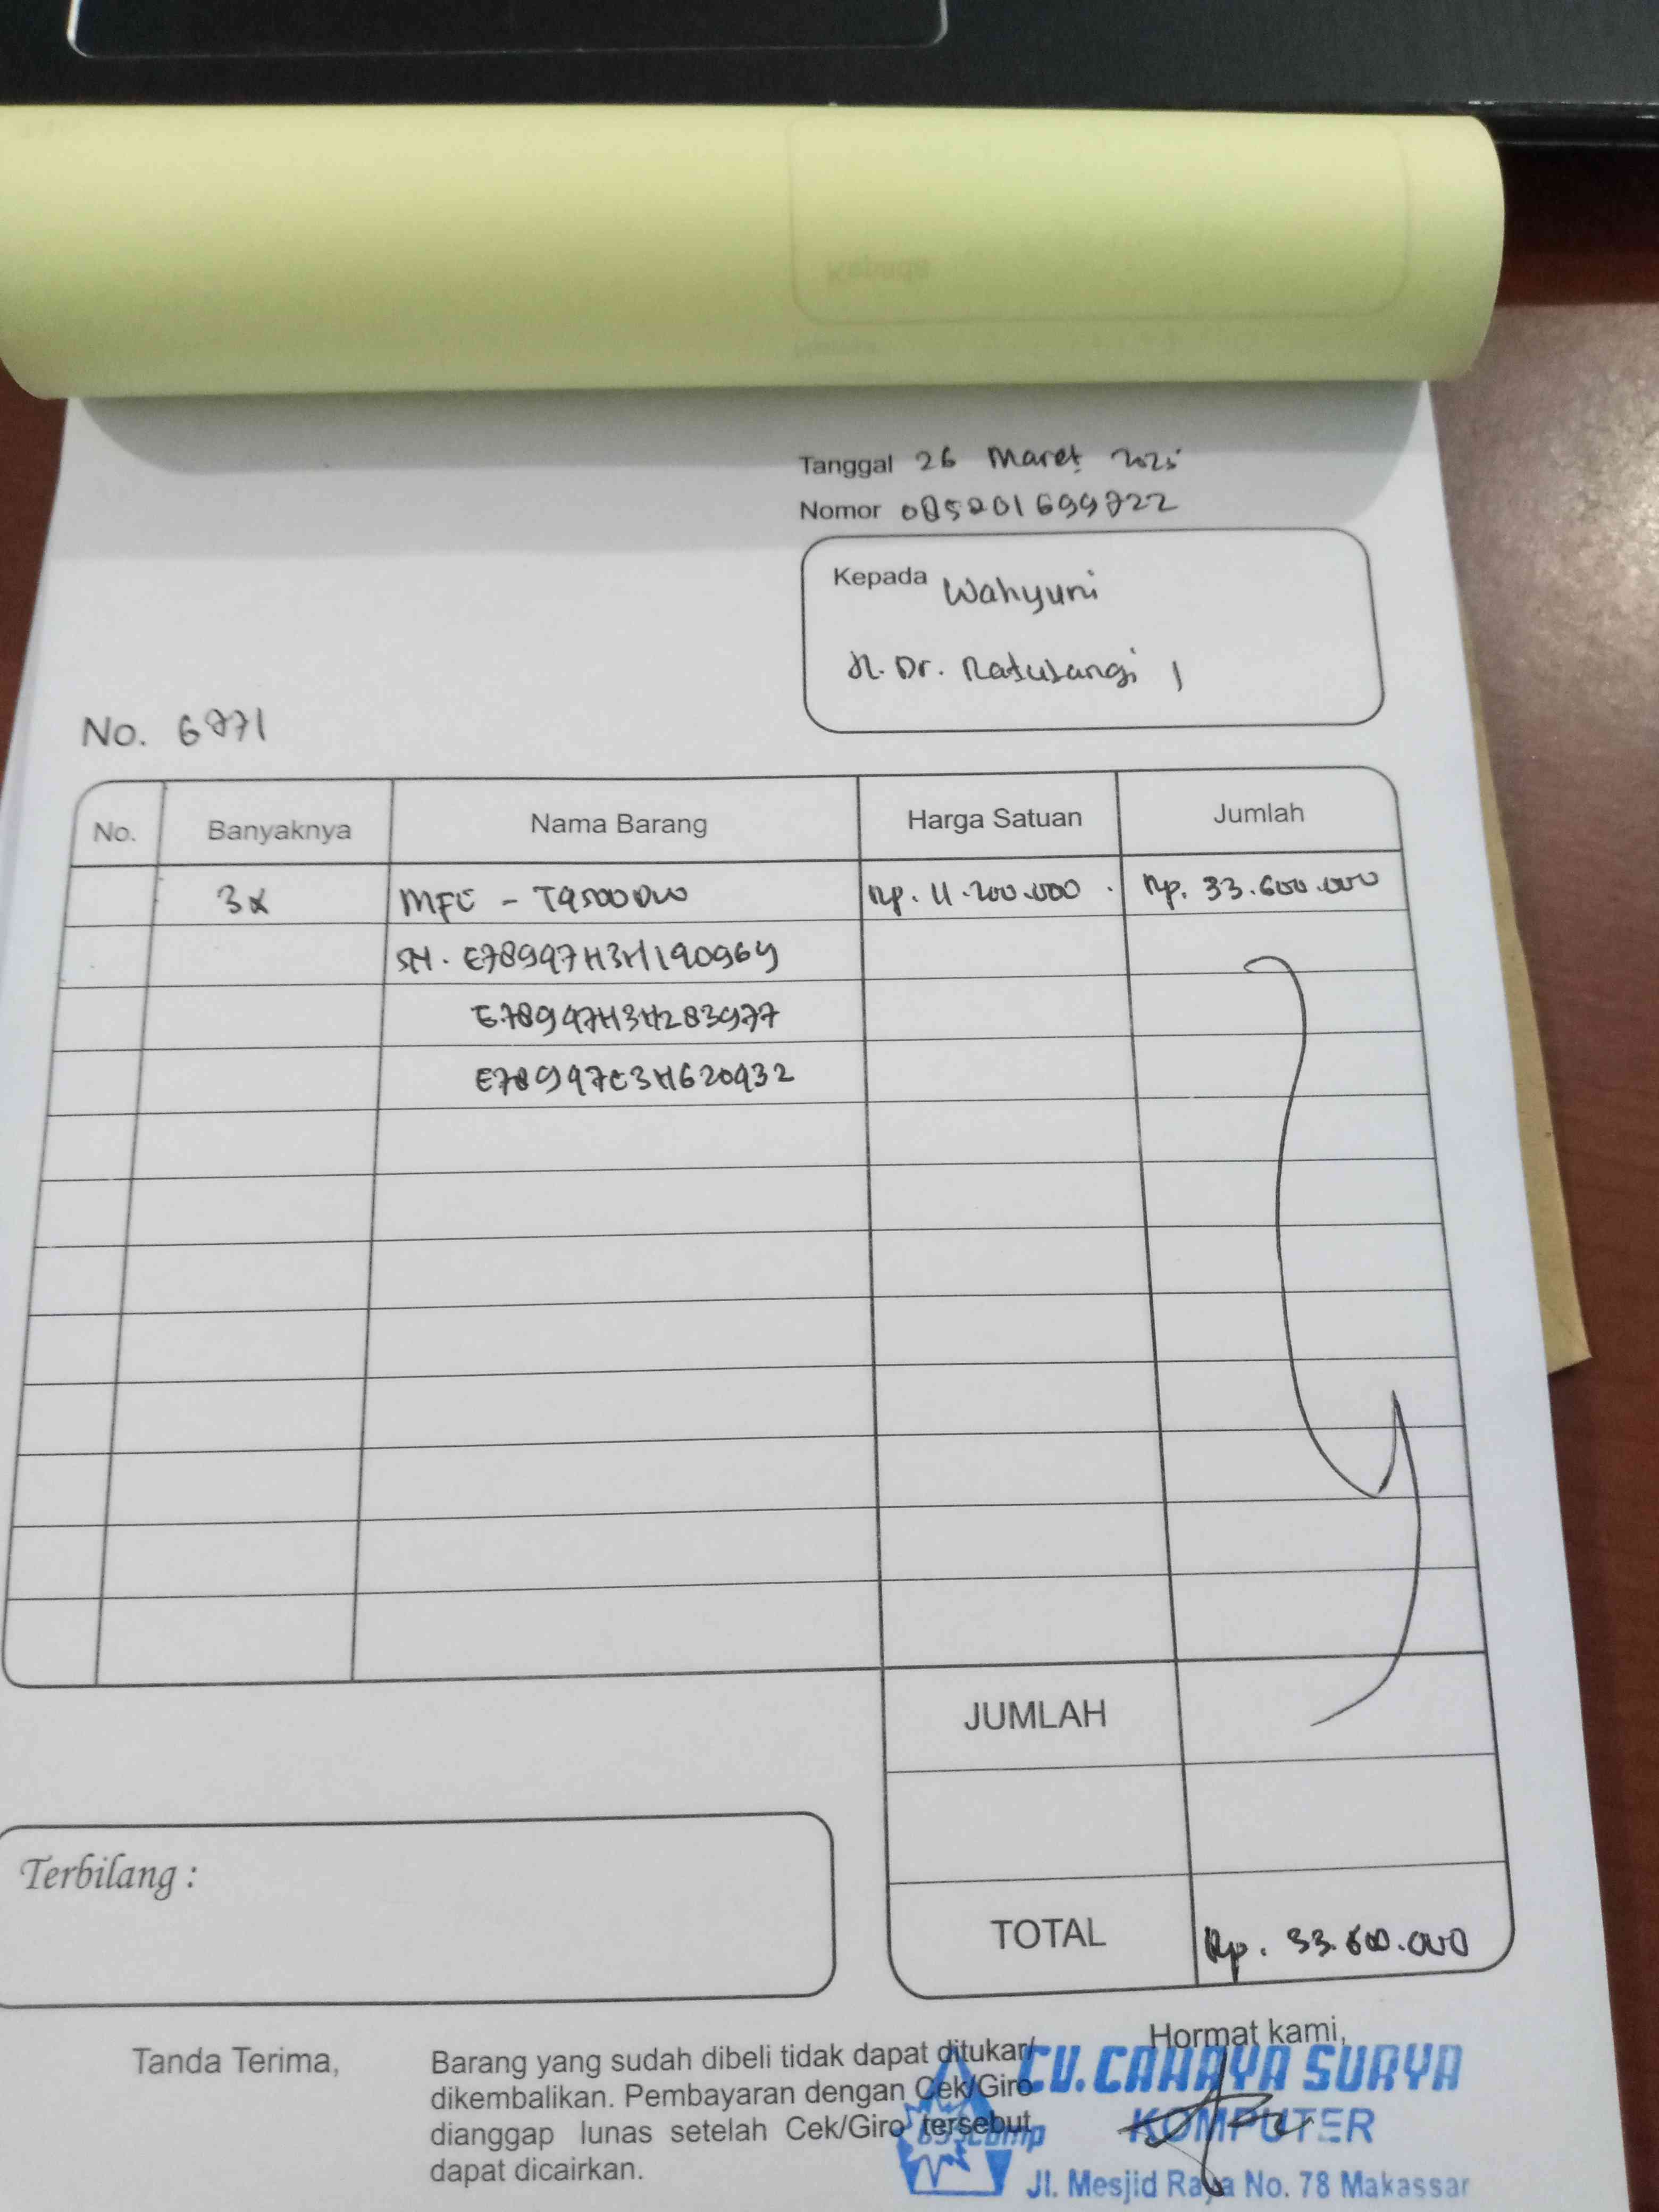 Tanggal 26 Maret 2025
Nomor 085201699722
Kepada Wahyuni
Jl. Dr. Ratulangi 1
No. 6771
No. Banyaknya Nama Barang Harga Satuan Jumlah
3x MFC - T4500DW Rp. 11.200.000 Rp. 33.600.000
SN. E78997H3H190964
E78997H3H283977
E78997C3H620932
JUMLAH
Terbilang :
TOTAL Rp. 33.600.000
Tanda Terima,
Barang yang sudah dibeli tidak dapat ditukar/
dikembalikan. Pembayaran dengan Cek/Giro
dianggap lunas setelah Cek/Giro tersebut
dapat dicairkan.
Hormat kami,
CV. CAHAYA SURYA
KOMPUTER
Jl. Mesjid Raya No. 78 Makassar